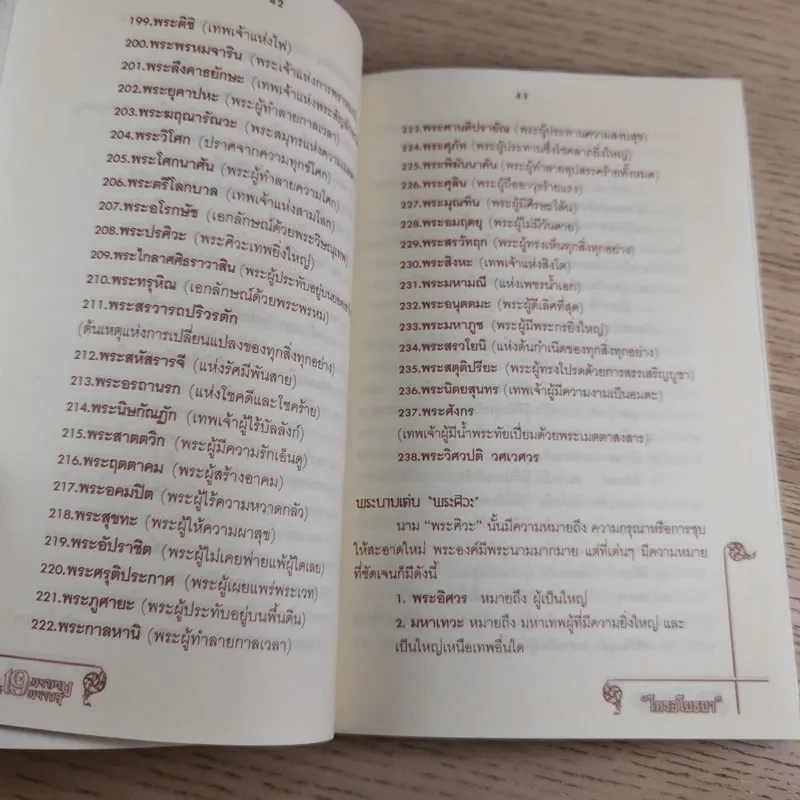 42
199.พระติชิ (เทพเจ้าแห่งไฟ)
200.พระพรหมจาริน (พระเจ้าแห่งการ
201.พระลึงคาธยักษะ (เทพเจ้าแห่งพระ
202.พระยุคาปหะ (พระผู้ทำลายกาลเวลา)
203.พระฆฤณารัณวะ (พระสมุทรแห่งความ
204.พระวิโศก (ปราศจากความทุกข์โศก)
205.พระโศกนาศัน (พระผู้ทำลายความโศก)
206.พระตรีโลกบาล (เทพเจ้าแห่งสามโลก)
207.พระอโรกษัช (เอกลักษณ์ด้วยพระวิษณุเทพ)
208.พระปรศิวะ (พระศิวะเทพยิ่งใหญ่)
209.พระไกลาศศิธราวาสิน (พระผู้ประทับอยู่บน
210.พระทรุหิณ (เอกลักษณ์ด้วยพระพรหม)
211.พระสรวารถปริวรตัก
(ต้นเหตุแห่งการเปลี่ยนแปลงของทุกสิ่งทุกอย่าง)
212.พระสหัสรารจี (แห่งรัศมีพันสาย)
213.พระอรถานรก (แห่งโชคดีและโชคร้าย)
214.พระนิษกัณฏัก (เทพเจ้าผู้ไร้บัลลังก์)
215.พระสาตตวิก (พระผู้มีความรักเอ็นดู)
216.พระฤตตาคม (พระผู้สร้างอาคม)
217.พระอคมปิต (พระผู้ไร้ความหวาดกลัว)
218.พระสุขทะ (พระผู้ให้ความผาสุข)
219.พระอัปราชิต (พระผู้ไม่เคยพ่ายแพ้ผู้ใดเลย)
220.พระศรุติประกาศ (พระผู้เผยแพร่พระเวท)
221.พระภูศายะ (พระผู้ประทับอยู่บนพื้นดิน)
222.พระกาลหานิ (พระผู้ทำลายกาลเวลา)
19 มหาเทพ
43
223.พระศานติปรายัณ (พระผู้ประทานความสงบสุข)
224.พระศุภัท (พระผู้ประทานซึ่งโชคลาภยิ่งใหญ่)
225.พระพิฆันนาศัน (พระผู้ทำลายอุปสรรคร้ายทั้งหมด)
226.พระศุลิน (พระผู้ถืออาวุธร้ายแรง)
227.พระมุณฑิน (พระผู้มีศีรษะโล้น)
228.พระอมฤตยุ (พระผู้ไม่มีวันตาย)
229.พระสรวัทฤก (พระผู้ทรงเห็นทุกสิ่งทุกอย่าง)
230.พระสิงหะ (เทพเจ้าแห่งสิงโต)
231.พระมหามณี (แห่งเพชรน้ำเอก)
232.พระอนุตตมะ (พระผู้ดีเลิศที่สุด)
233.พระมหาภูช (พระผู้มีพระกรยิ่งใหญ่)
234.พระสรวโยนิ (แห่งต้นกำเนิดของทุกสิ่งทุกอย่าง)
235.พระสตุติปรียะ (พระผู้ทรงโปรดด้วยการสรรเสริญบูชา)
236.พระนิตยสุนทร (เทพเจ้าผู้มีความงามเป็นอมตะ)
237.พระศังกร
(เทพเจ้าผู้มีน้ำพระทัยเปี่ยมด้วยพระเมตตาสงสาร)
238.พระวิศวปติ วศเวศวร
พระนามเด่น "พระศิวะ"
นาม "พระศิวะ" นั้นมีความหมายถึง ความกรุณาหรือการชุบ
ให้สะอาดใหม่ พระองค์มีพระนามมากมาย แต่ที่เด่นๆ มีความหมาย
ที่ชัดเจนก็มีดังนี้
1. พระอิศวร หมายถึง ผู้เป็นใหญ่
2. มหาเทวะ หมายถึง มหาเทพผู้ที่มีความยิ่งใหญ่ และ
เป็นใหญ่เหนือเทพอื่นใด